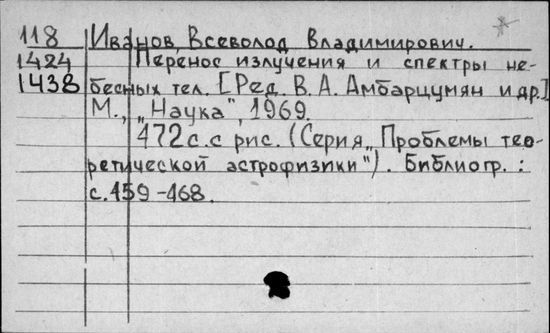 118 Иванов, Всеволод Владимирович.
1424 Перенос излучения и спектры не-
1438 бесных тел. [Ред. В. А. Амбарцумян и др.]
М., „Наука", 1969.
472 с. с рис. (Серия „Проблемы тео-
ретической астрофизики"). Библиогр. :
с. 459-468.